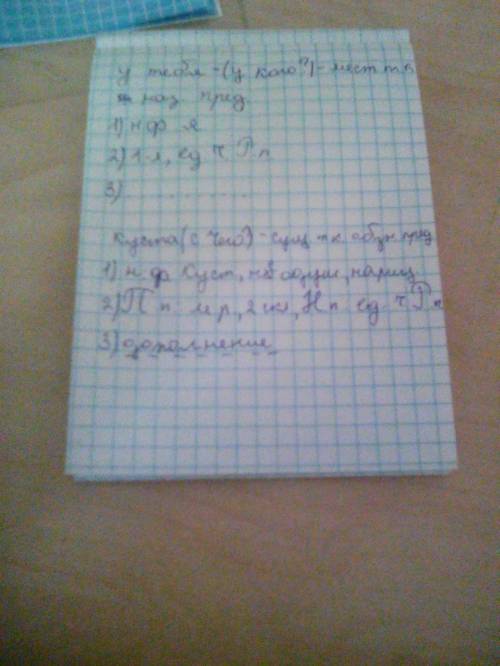 у тебя - (у кого?) - мест т.к.
наз. пред.
1) н.ф. я
2) 1 л, ед ч Р. п
3) ............
Куста (с чего) - сущ т.к. обозн пред
1) н ф Куст, неодуш, нариц
2) П п м р, 2 ск, Н п ед. ч Р п
3) дополнение